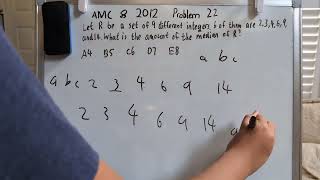 AMC 8 2012 Problem 22
Let R be a set of 9 different integers 6 of them are 2,3,4,6,9,
and 14. What is the amount of the median of R?
A4 B5 C6 D7 E8
a b c
a b c 2 3 4 6 9 14
2 3 4 6 9 14 a